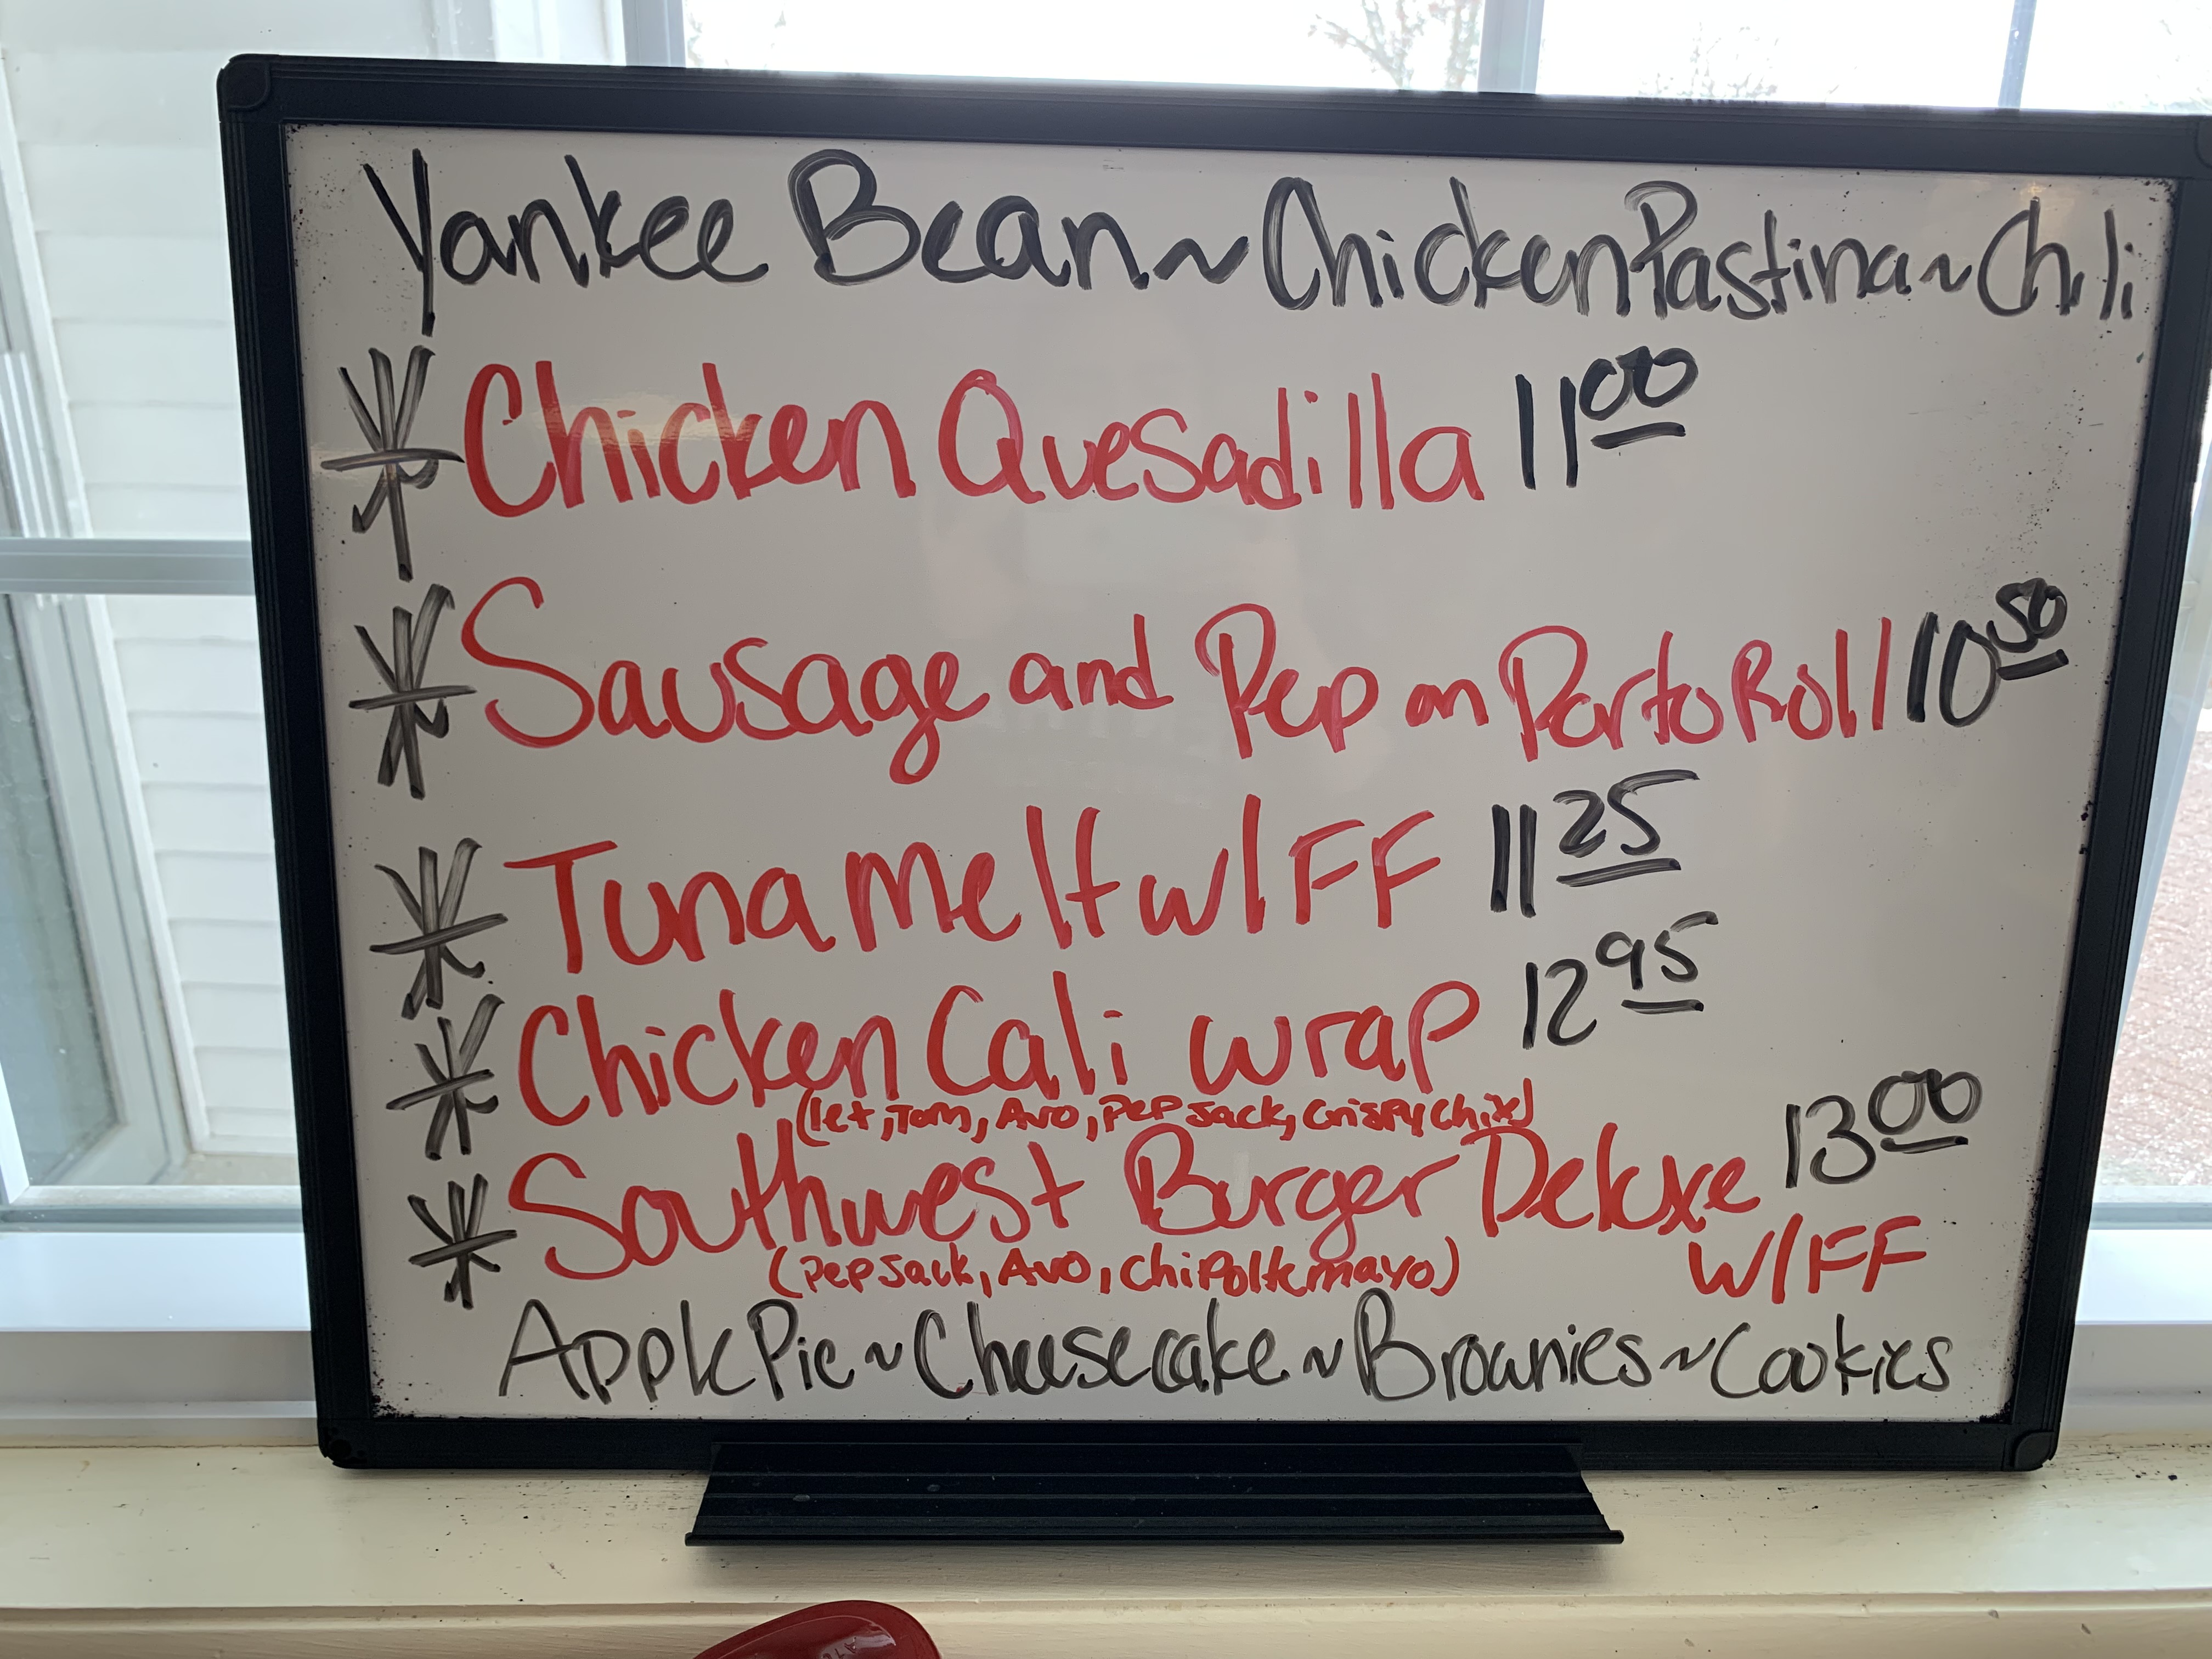 Yankee Bean ~ Chicken Pastina ~ Chili
* Chicken Quesadilla 11 00
* Sausage and Pep on Porto Roll 10 50
* Tuna Melt w/FF 11 25
* Chicken Cali wrap 12 95
(let, Tom, Avo, Pep Jack, Crispy Chix)
* Southwest Burger Deluxe 13 00
w/FF
(Pep Jack, Avo, Chipolte mayo)
Apple Pie ~ Cheesecake ~ Brownies ~ Cookies